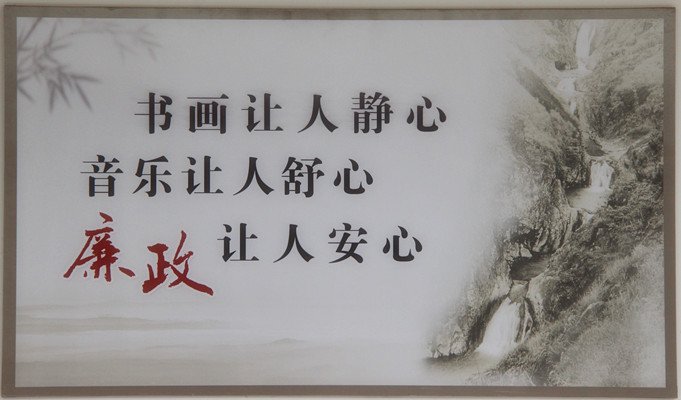 书画让人静心
音乐让人舒心
廉政让人安心